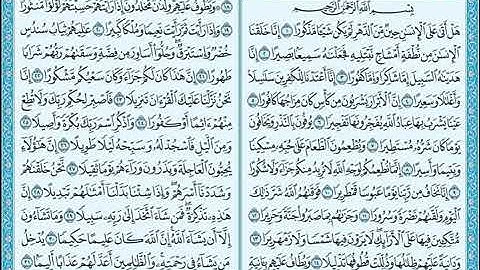 بِسْمِ اللَّهِ الرَّحْمَٰنِ الرَّحِيمِ
هَلْ أَتَىٰ عَلَى الْإِنسَٰنِ حِينٌ مِّنَ الدَّهْرِ لَمْ يَكُن شَيْـًٔا مَّذْكُورًا ١ إِنَّا خَلَقْنَا
الْإِنسَٰنَ مِن نُّطْفَةٍ أَمْشَاجٍ نَّبْتَلِيهِ فَجَعَلْنَٰهُ سَمِيعًا بَصِيرًا ٢ إِنَّا
هَدَيْنَٰهُ السَّبِيلَ إِمَّا شَاكِرًا وَإِمَّا كَفُورًا ٣ إِنَّا أَعْتَدْنَا لِلْكَٰفِرِينَ سَلَٰسِلَا
وَأَغْلَٰلًا وَسَعِيرًا ٤ إِنَّ الْأَبْرَارَ يَشْرَبُونَ مِن كَأْسٍ كَانَ مِزَاجُهَا كَافُورًا ٥
عَيْنًا يَشْرَبُ بِهَا عِبَادُ اللَّهِ يُفَجِّرُونَهَا تَفْجِيرًا ٦ يُوفُونَ بِالنَّذْرِ وَيَخَافُونَ
يَوْمًا كَانَ شَرُّهُ مُسْتَطِيرًا ٧ وَيُطْعِمُونَ الطَّعَامَ عَلَىٰ حُبِّهِ مِسْكِينًا
وَيَتِيمًا وَأَسِيرًا ٨ إِنَّمَا نُطْعِمُكُمْ لِوَجْهِ اللَّهِ لَا نُرِيدُ مِنكُمْ جَزَآءً وَلَا شُكُورًا
٩ إِنَّا نَخَافُ مِن رَّبِّنَا يَوْمًا عَبُوسًا قَمْطَرِيرًا ١٠ فَوَقَىٰهُمُ اللَّهُ شَرَّ ذَٰلِكَ
الْيَوْمِ وَلَقَّىٰهُمْ نَضْرَةً وَسُرُورًا ١١ وَجَزَىٰهُم بِمَا صَبَرُوا جَنَّةً وَحَرِيرًا ١٢
مُّتَّكِـِٔينَ فِيهَا عَلَى الْأَرَآئِكِ لَا يَرَوْنَ فِيهَا شَمْسًا وَلَا زَمْهَرِيرًا ١٣
وَدَانِيَةً عَلَيْهِمْ ظِلَٰلُهَا وَذُلِّلَتْ قُطُوفُهَا تَذْلِيلًا ١٤ وَيُطَافُ عَلَيْهِم بِـَٔانِيَةٍ
وَيَطُوفُ عَلَيْهِمْ وِلْدَٰنٌ مُّخَلَّدُونَ إِذَا رَأَيْتَهُمْ حَسِبْتَهُمْ لُؤْلُؤًا مَّنثُورًا
١٩ وَإِذَا رَأَيْتَ ثَمَّ رَأَيْتَ نَعِيمًا وَمُلْكًا كَبِيرًا ٢٠ عَٰلِيَهُمْ ثِيَابُ سُندُسٍ
خُضْرٌ وَإِسْتَبْرَقٌ وَحُلُّوا أَسَاوِرَ مِن فِضَّةٍ وَسَقَىٰهُمْ رَبُّهُمْ شَرَابًا
طَهُورًا ٢١ إِنَّ هَٰذَا كَانَ لَكُمْ جَزَآءً وَكَانَ سَعْيُكُم مَّشْكُورًا ٢٢ إِنَّا
نَحْنُ نَزَّلْنَا عَلَيْكَ الْقُرْءَانَ تَنزِيلًا ٢٣ فَاصْبِرْ لِحُكْمِ رَبِّكَ وَلَا تُطِعْ
مِنْهُمْ ءَاثِمًا أَوْ كَفُورًا ٢٤ وَاذْكُرِ اسْمَ رَبِّكَ بُكْرَةً وَأَصِيلًا ٢٥
وَمِنَ الَّيْلِ فَاسْجُدْ لَهُ وَسَبِّحْهُ لَيْلًا طَوِيلًا ٢٦ إِنَّ هَٰٓؤُلَآءِ
يُحِبُّونَ الْعَاجِلَةَ وَيَذَرُونَ وَرَآءَهُمْ يَوْمًا ثَقِيلًا ٢٧ نَّحْنُ خَلَقْنَٰهُمْ
وَشَدَدْنَآ أَسْرَهُمْ وَإِذَا شِئْنَا بَدَّلْنَآ أَمْثَٰلَهُمْ تَبْدِيلًا ٢٨ إِنَّ
هَٰذِهِ تَذْكِرَةٌ فَمَن شَآءَ اتَّخَذَ إِلَىٰ رَبِّهِ سَبِيلًا ٢٩ وَمَا تَشَآءُونَ
إِلَّآ أَن يَشَآءَ اللَّهُ إِنَّ اللَّهَ كَانَ عَلِيمًا حَكِيمًا ٣٠ يُدْخِلُ
مَن يَشَآءُ فِى رَحْمَتِهِ وَالظَّٰلِمِينَ أَعَدَّ لَهُمْ عَذَابًا أَلِيمًا ٣١